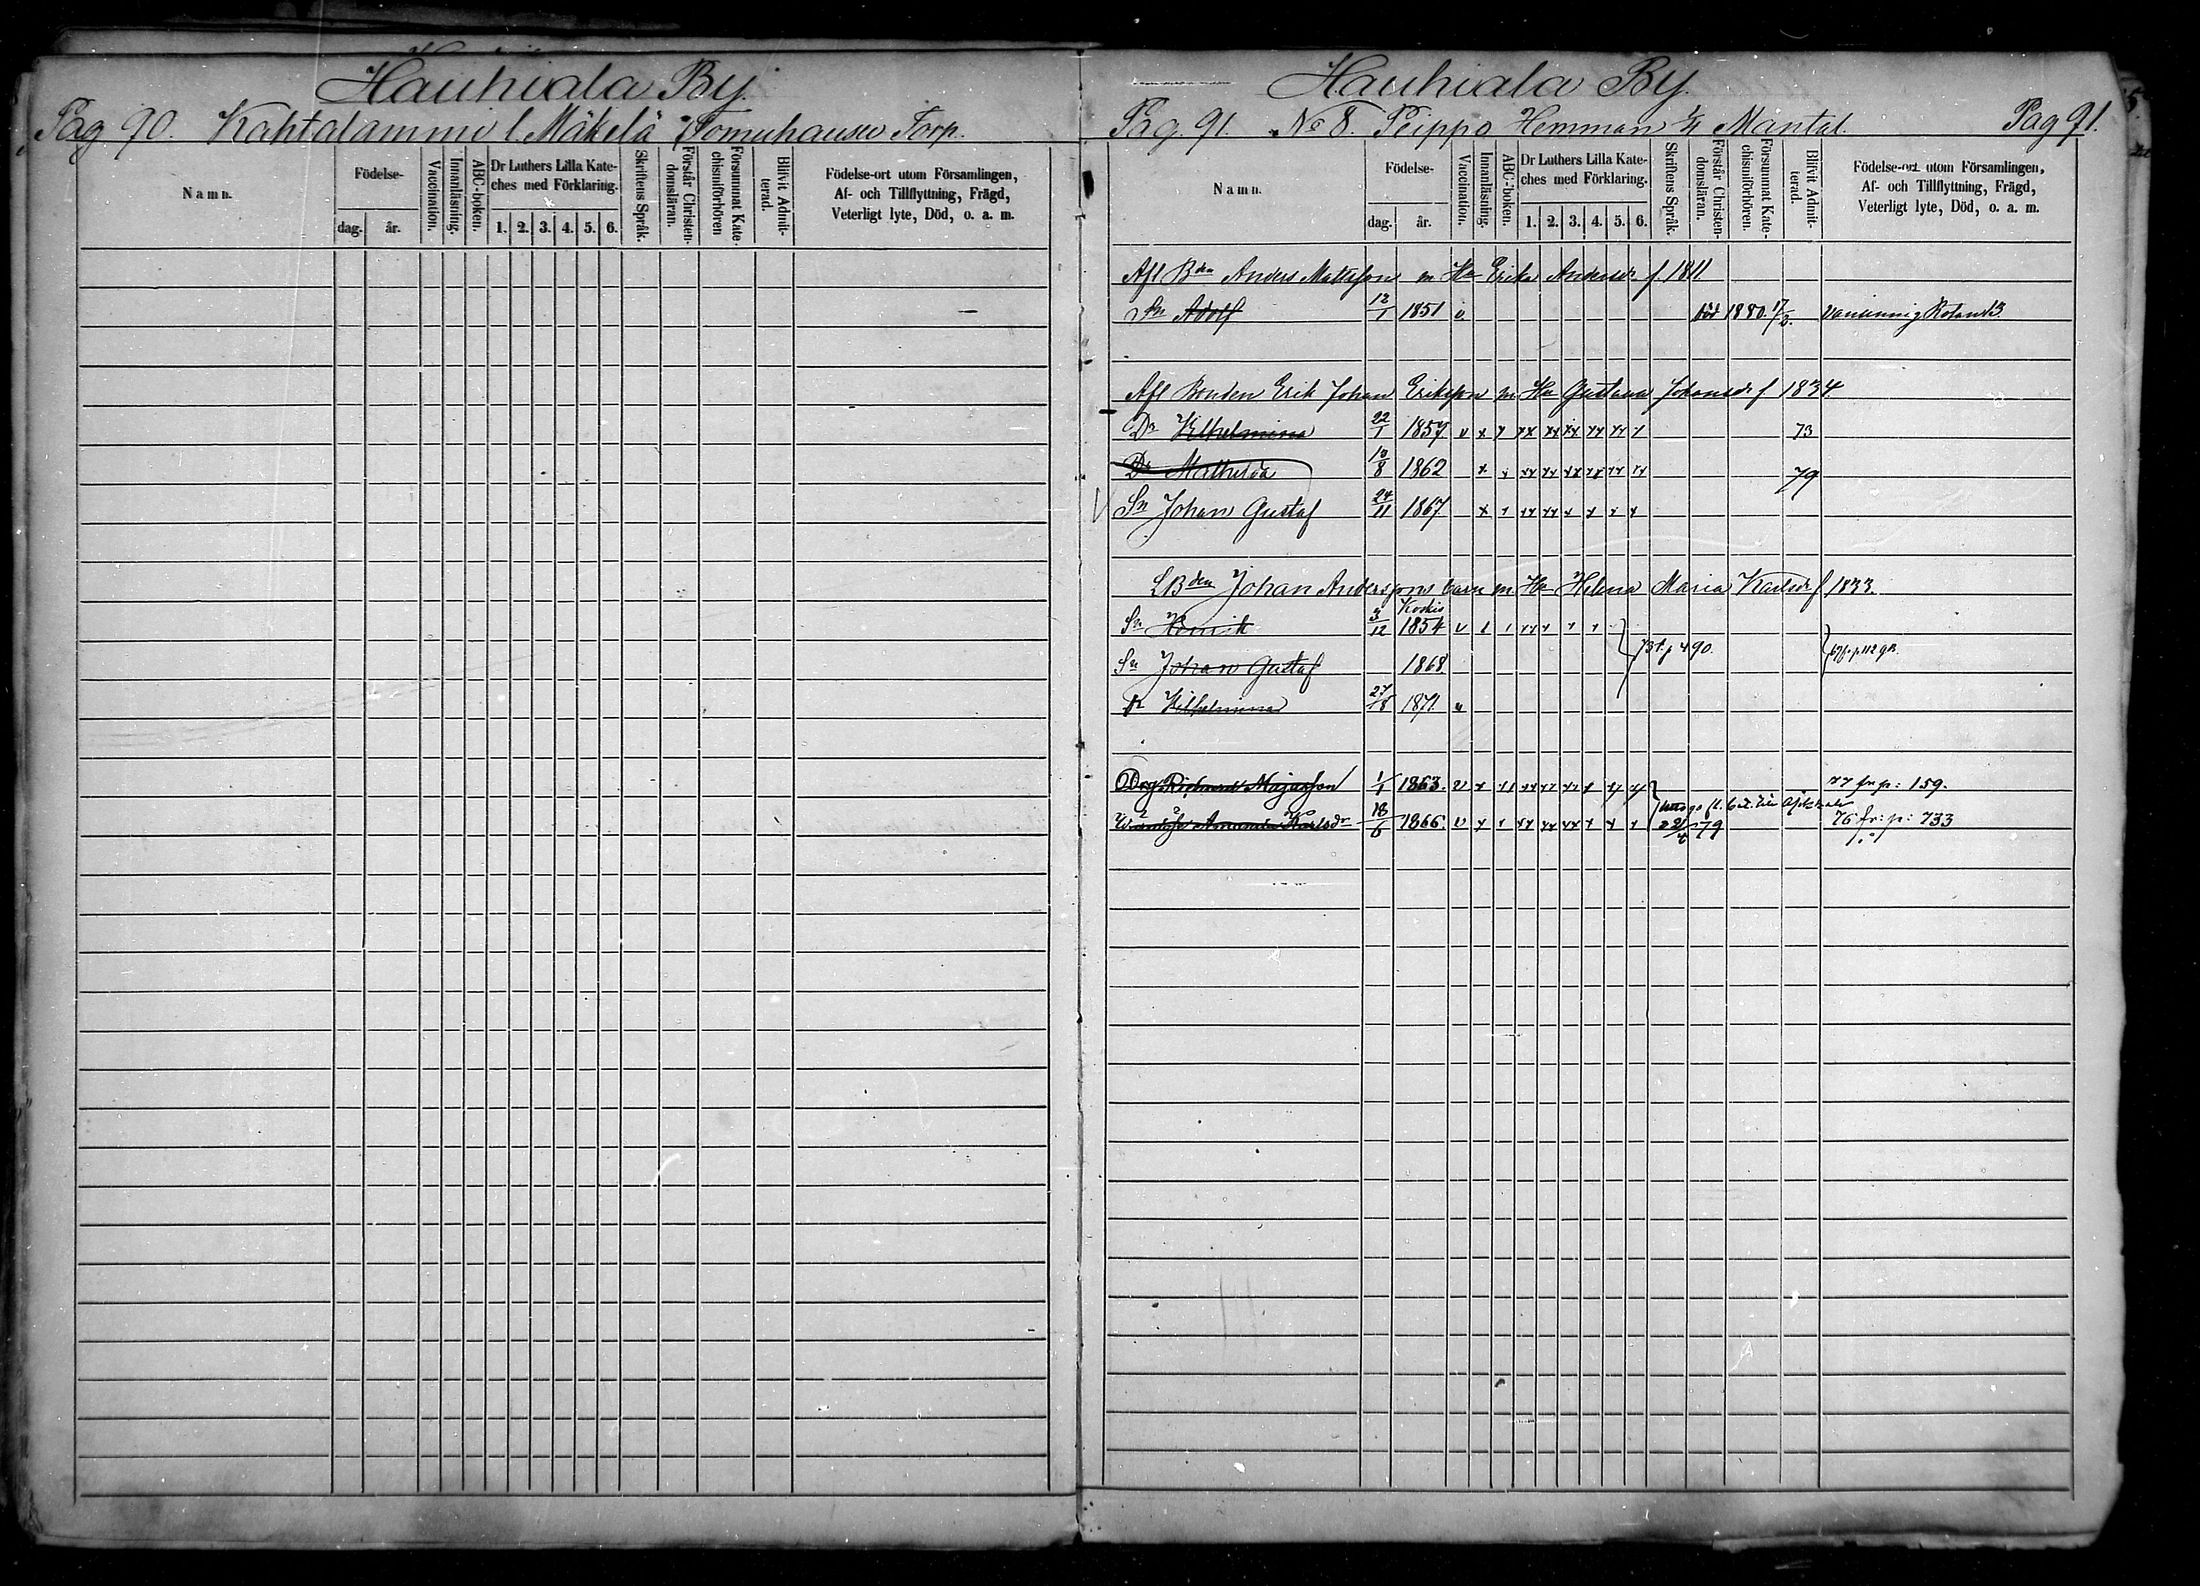 Hauhiala By.
Pag 90. Kahtalammi l. Mäkelä Torp.
Namn.
Födelse-
dag. år.
Vaccination.
Innanläsning.
ABC-boken.
Dr Luthers Lilla Kate-
ches med Förklaring.
1. 2. 3. 4. 5. 6.
Skriftens Språk.
Förstår Christen-
domsläran.
Försummat Kate-
chismiförhören
Blifvit Admit-
terad.
Födelse-ort utom Församlingen,
Af- och Tillflyttning, Frägd,
Veterligt lyte, Död, o. a. m.
Hauhiala By.
Pag. 91. No 8. Peippo Hemman 1/4 Mantal. Pag 91.
Namn.
Födelse-
dag. år.
Vaccination.
Innanläsning.
ABC-boken.
Dr Luthers Lilla Kate-
ches med Förklaring.
1. 2. 3. 4. 5. 6.
Skriftens Språk.
Förstår Christen-
domsläran.
Försummat Kate-
chismiförhören.
Blifvit Admit-
terad.
Födelse-ort utom Församlingen,
Af- och Tillflyttning, Frägd,
Veterligt lyte, Död, o. a. m.
Afl Bden Anders Mattsson m Ha Erika Andersdr f. 1811
Sn Adolf 12/1 1851 v. död 1880 17/2.
Afl Bonden Erik Johan Eriksson m Ha Gustava Johansdr f 1834
Dr Wilhelmina 22/1 1857 v x x xx xx xx xx xx x 73
Dr Mathilda 10/8 1862 x x xx xx xx xx xx xx 79
Sn Johan Gustaf 24/11 1867 x x xx xx x x x x
LBden Johan Anderssons barn m Ha Helena Maria Karlsdr f 1833.
Sn Henrik 3/12 1854 v
Sn Johan Gustaf 1868 p 490.
Dr Wilhelmina 27/8 1871 v
Drg Majasson 1/1 1863. v 77 fr. p: 159.
Amanda Karlsdr 18/6 1866. v 79 76 fr: p: 733